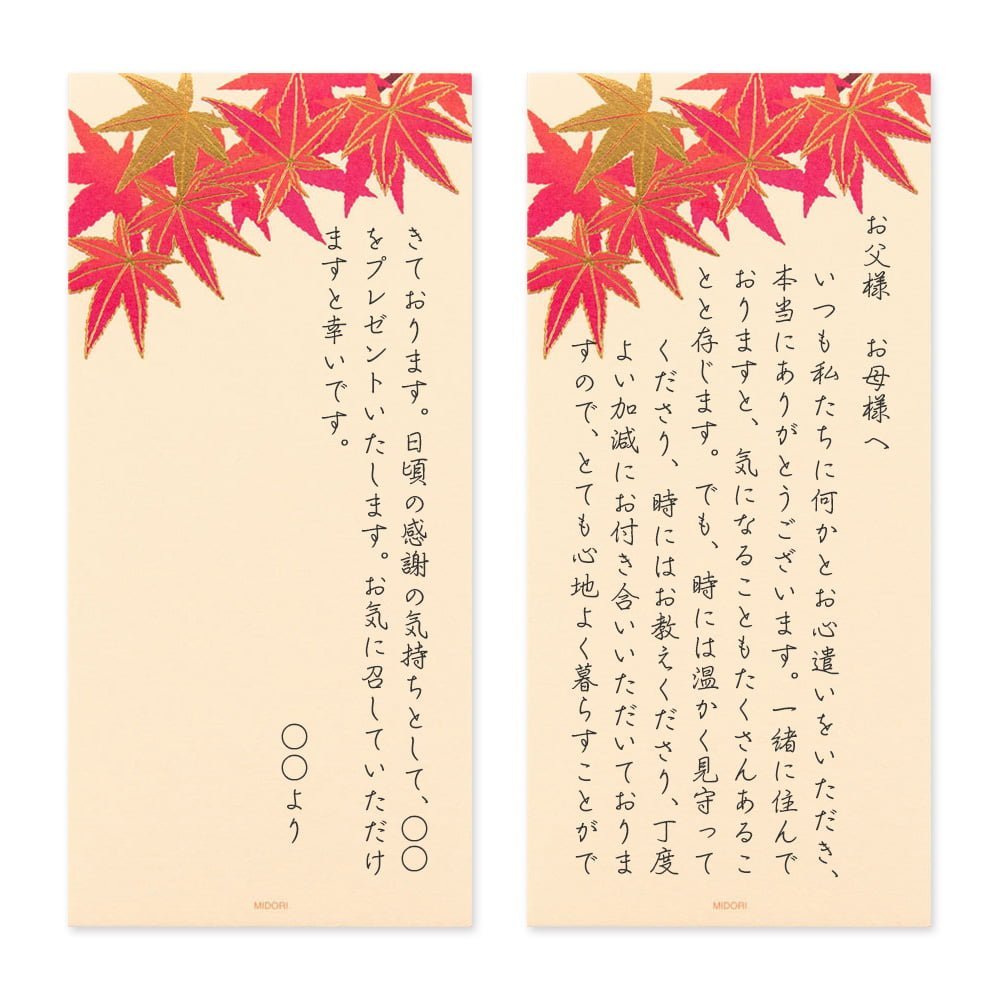 お父様　お母様へ
いつも私たちに何かとお心遣いをいただき、
本当にありがとうございます。一緒に住んで
おりますと、気になることもたくさんあるこ
とと存じます。でも、時には温かく見守って
くださり、時にはお教えくださり、丁度
よい加減にお付き合いいただいておりま
すので、とても心地よく暮らすことがで
MIDORI
きております。日頃の感謝の気持ちとして、〇〇
をプレゼントいたします。お気に召していただけ
ますと幸いです。
〇〇より
MIDORI